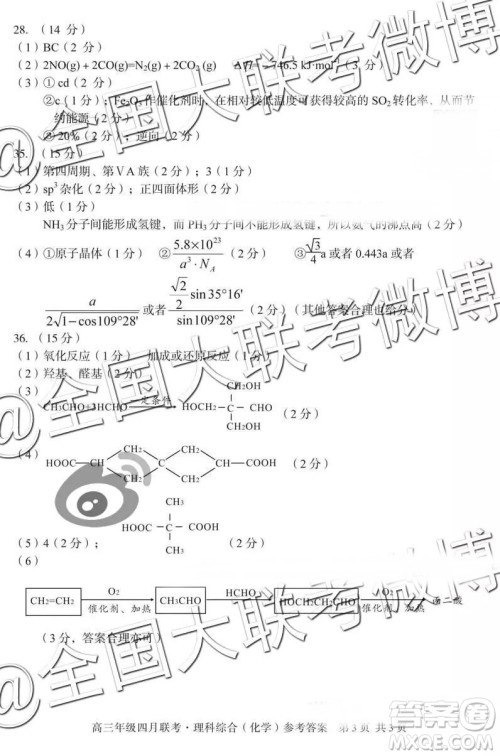 28.（14 分）
（1）BC（2 分）
（2）2NO(g)+2CO(g)=N₂(g)+2CO₂(g) ΔH=−746.5 kJ·mol⁻¹（3 分）
（3）①cd（2 分）
②c（1 分）；Fe₂O₃作催化剂时，在相对较低温度可获得较高的 SO₂转化率，从而节
约能源（2 分）
③20%（2 分）；逆向（2 分）
35.（15 分）
（1）第四周期、第ⅤA 族（2 分）；3（1 分）
（2）sp³杂化（1 分）；正四面体形（2 分）
（3）低（1 分）
NH₃分子间能形成氢键，而 PH₃分子间不能形成氢键，所以氨气的沸点高（2 分）
（4）①原子晶体（1 分） ②5.8×10²³/(a³·N_A)（2 分） ③√3/4 a 或者 0.443a 或者
a/(2√(1-cos109°28')) 或者 (√2/2 sin35°16')/sin109°28'（2 分）（其他答案合理也给分）
36.（15 分）
（1）氧化反应（1 分） 加成或还原反应（1 分）
（2）羟基、醛基（2 分）
（3）
CH₃CHO+3HCHO 一定条件 HOCH₂—C—CHO（2 分）
CH₂OH
CH₂OH
（4）
HOOC—CH CH₂ CH₂ C CH₂ CH₂ CH—COOH（2 分）
（5）4（2 分）；HOOC—C—COOH（2 分）
CH₃
CH₃
（6）
CH₂=CH₂ O₂ 催化剂、加热 CH₃CHO HCHO HOCH₂CH₂CHO O₂ 催化剂、加热 丙二酸
（3 分，答案合理亦可）
高三年级四月联考·理科综合（化学）参考答案 第 3 页 共 3 页
@全国大联考微博
@全国大联考微博